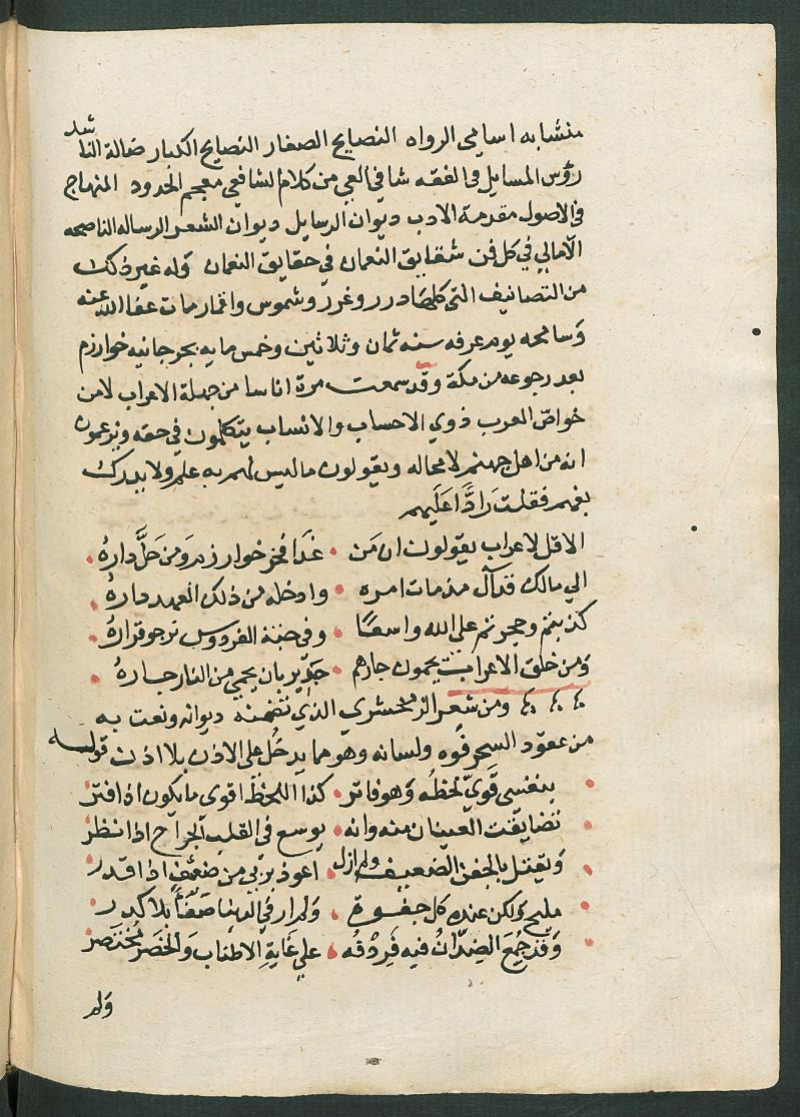 متشابه اسامي الرواه النصايح الصغار النصايح الكبار ضالة الناشد
رؤس المسايل في الفقه شافي العي من كلام الشافعي معجم الحدود المنهاج
في الاصول مقدمة الادب ديوان الرسايل ديوان الشعر الرساله الناصحه
الأمالي في كل فن شقايق النعمان في حقايق النعمان وله غير ذلك
من التصانيف التي كلها درر وغرر وشموس واقمار مات عفا الله عنه
وسامحه يوم عرفه سنه ثمان وثلاثين وخمس مايه بجرجانيه خوارزم
بعد رجوعه من مكة وقد سمعت مرة اناسا من جملة الاعراب لا من
خواص العرب ذوي الاحساب والانساب يتكلمون في حقه ويزعمون
انه من اهل جهنم لا محاله ويقولون ما ليس لهم به علم ولا يدرك
بفهم فقلت رادًّا عليهم
الا قل لاعراب يقولون ان مَن • غدا فخر خوارزم ومن حلَّ دارهُ •
الي مالك قد آل مذ مات امره • وادخله من ذلك العهد دارهُ •
كذبتم وحجرتم علي الله واسعًا • وفي جنة الفردوس نرجو قرارهُ •
ومن خلق الاعراب يحمون جارهم • جدير بان يحمي من النار جارهُ •
ومن شعر الزمخشري الذي تضمنه ديوانه ونعت به
من عقود السحر فوه ولسانه وهو مما يدخل علي الاذن بلا اذن قولسه
• بنفسي قويّ لحظُه وهو فاتر • كذا اللحظ اقوي ما يكون اذا فتر
• تضايقت العينان منه وانه • يوسع في القلب الجراح اذا نظر
• ويقتل بالجفن الضعيف ولم ازل • اعوذ بربي من ضعيف اذا قدر
• مليح ولكن عنده كل جفوة • ولم ار في الدنيا صفاءً بلا كدر
• وقد جُمعَ الضدّان فيه فردفُه • علي غايةِ الاطناب والخصر مختصر
ولم